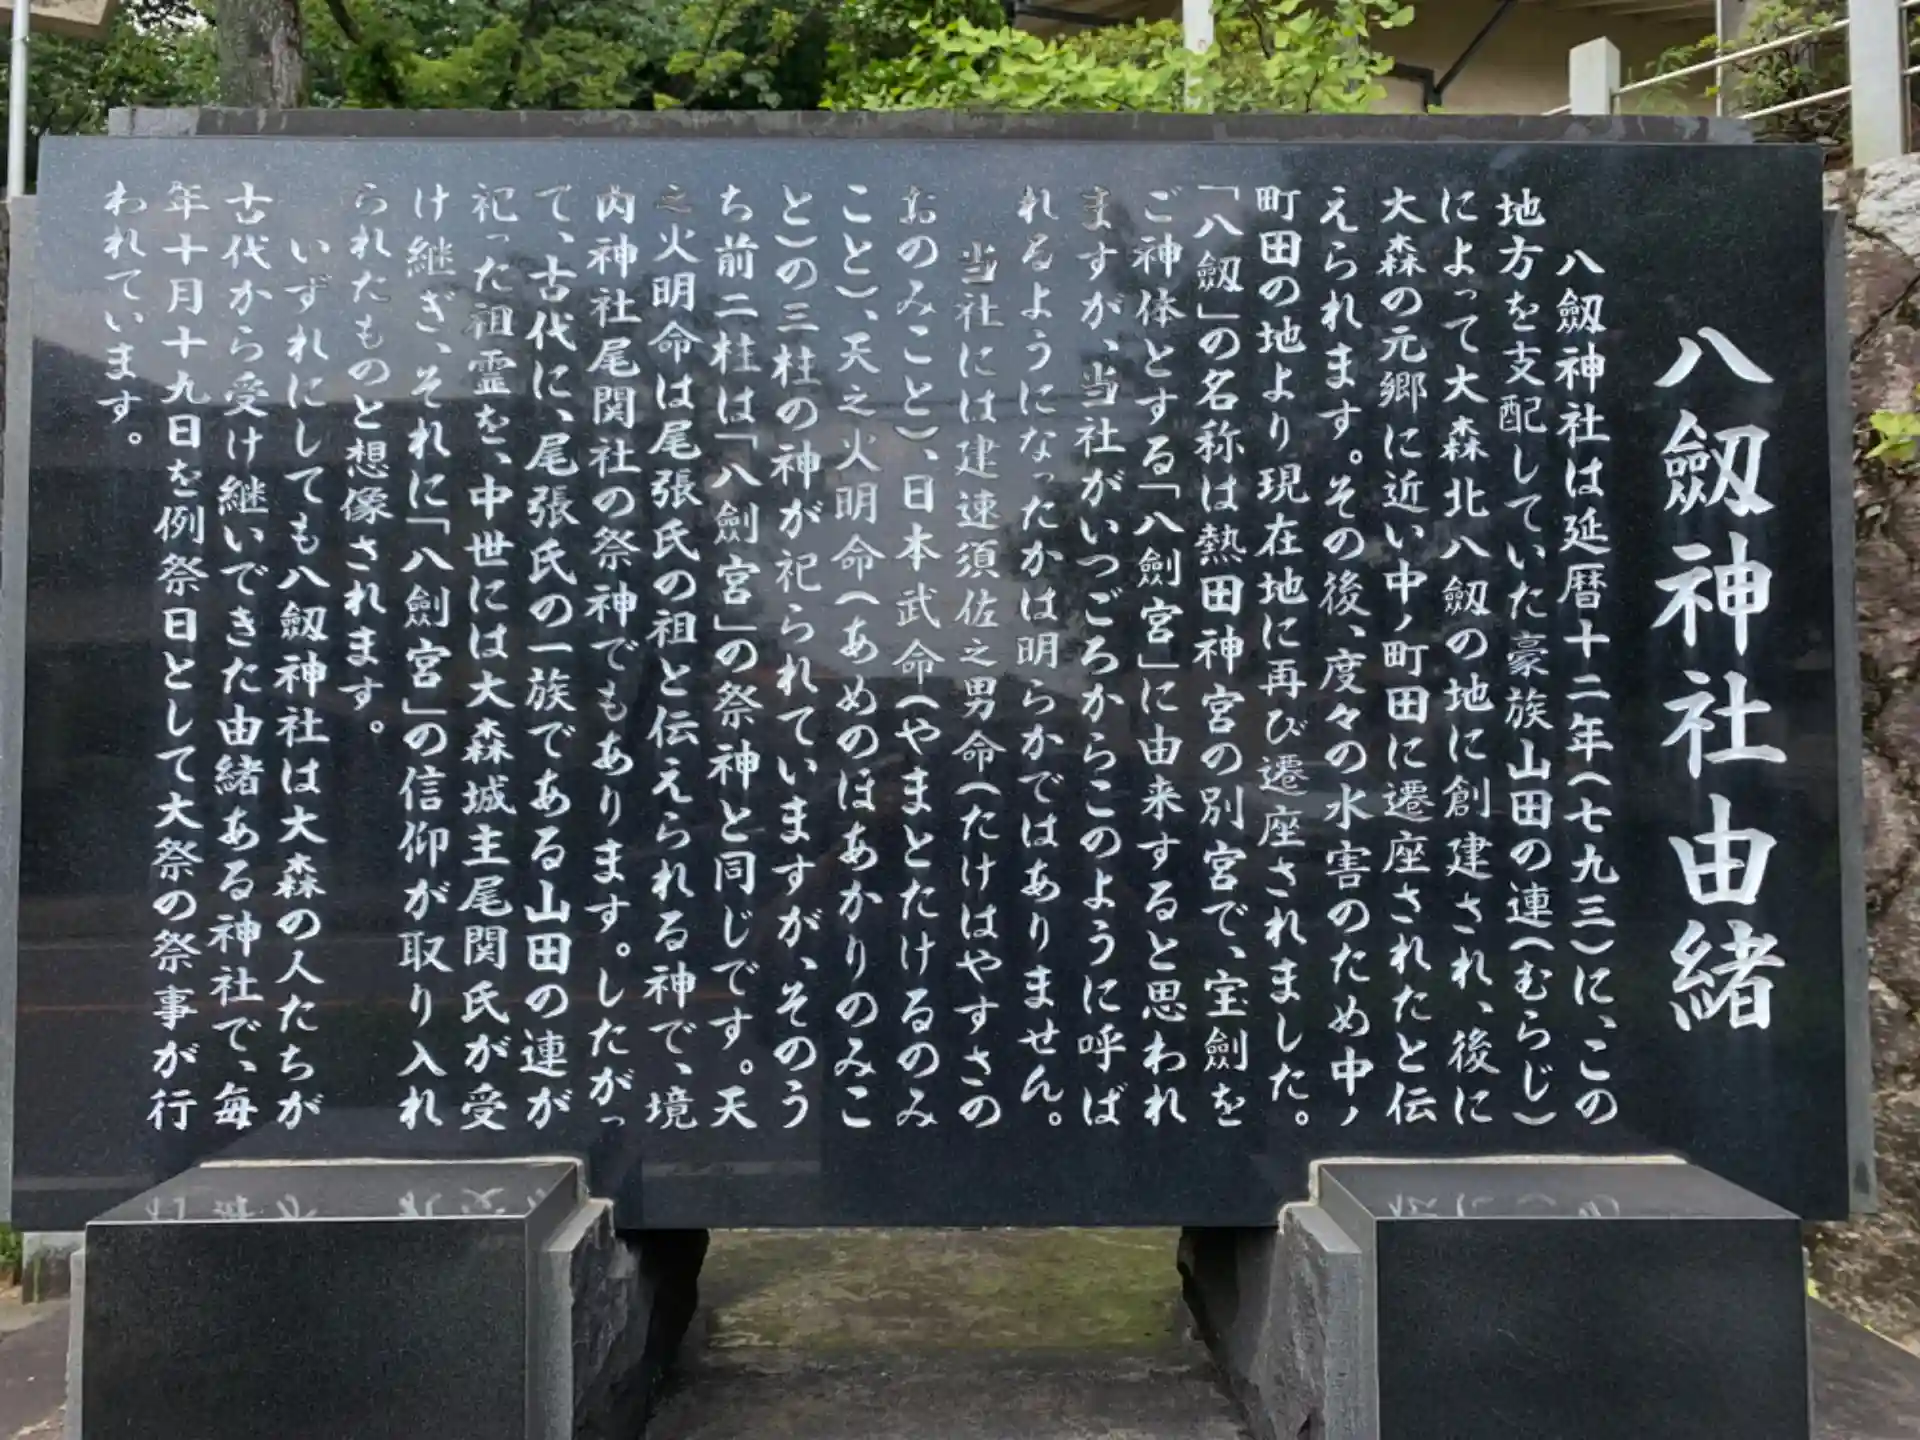 八劔神社由緒
八劔神社は延暦十二年(七九三)に、この
地方を支配していた豪族山田の連(むらじ)
によって大森北八劔の地に創建され、後に
大森の元郷に近い中ノ町田に遷座されたと伝
えられます。その後、度々の水害のため中ノ
町田の地より現在地に再び遷座されました。
「八劔」の名称は熱田神宮の別宮で、宝劍を
ご神体とする「八劍宮」に由来すると思われ
ますが、当社がいつごろからこのように呼ば
れるようになったかは明らかではありません。
当社には建速須佐之男命(たけはやすさの
おのみこと)、日本武命(やまとたけるのみ
こと)、天之火明命(あめのほあかりのみこ
と)の三柱の神が祀られていますが、そのう
ち前二柱は「八劍宮」の祭神と同じです。天
之火明命は尾張氏の祖と伝えられる神で、境
内神社尾関社の祭神でもあります。したがっ
て、古代に、尾張氏の一族である山田の連が
祀った祖霊を、中世には大森城主尾関氏が受
け継ぎ、それに「八劍宮」の信仰が取り入れ
られたものと想像されます。
いずれにしても八劔神社は大森の人たちが
古代から受け継いできた由緒ある神社で、毎
年十月十九日を例祭日として大祭の祭事が行
われています。